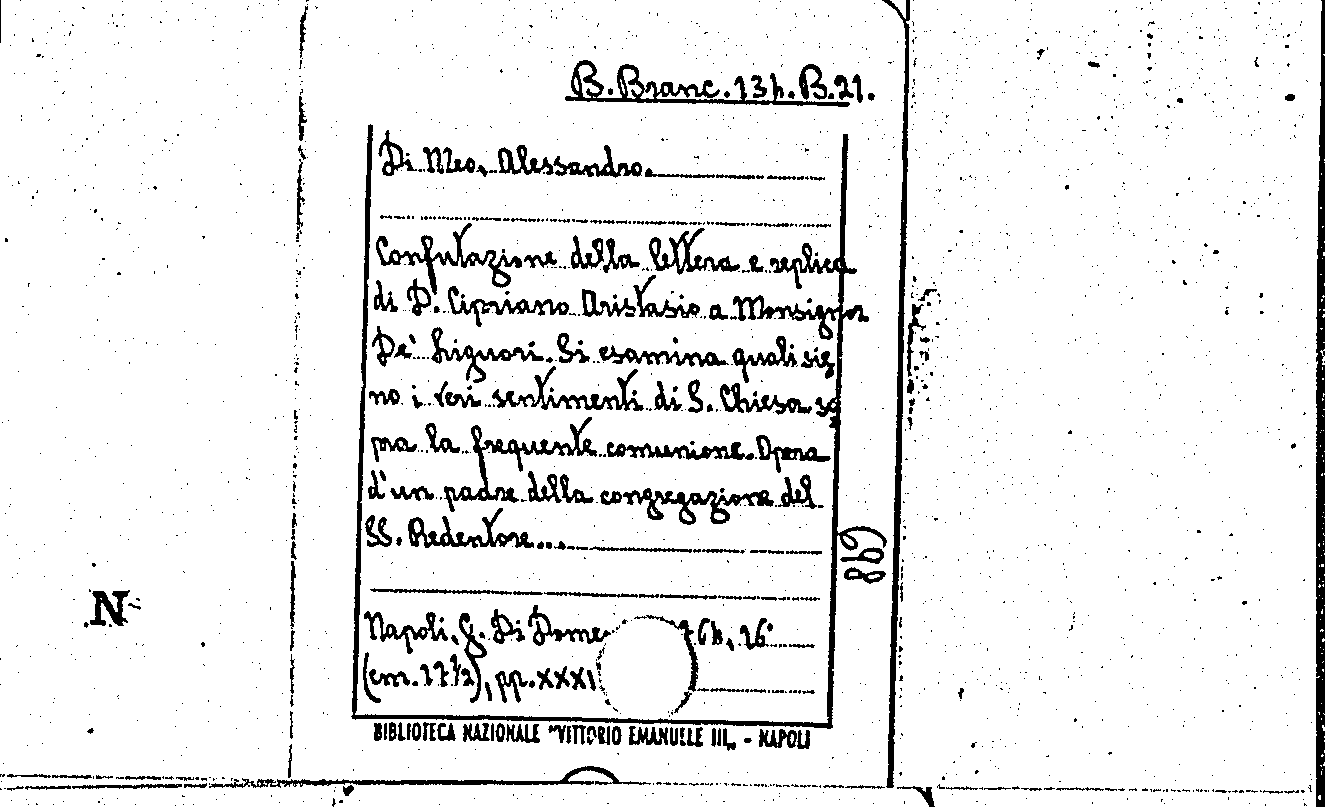 B. Branc. 13h. B.21.
Di Meo, Alessandro.
Confutazione della lettera e replica
di D. Cipriano Aristasio a Monsignor
De' Liguori. Si esamina quali sie
no i veri sentimenti di S. Chiesa so
pra la frequente comunione. Opera
d'un padre della congregazione del
SS. Redentore...
898
N
Napoli, G. Di Dome 16°
(cm. 17½), pp. XXXI
BIBLIOTECA NAZIONALE "VITTORIO EMANUELE III„ - NAPOLI